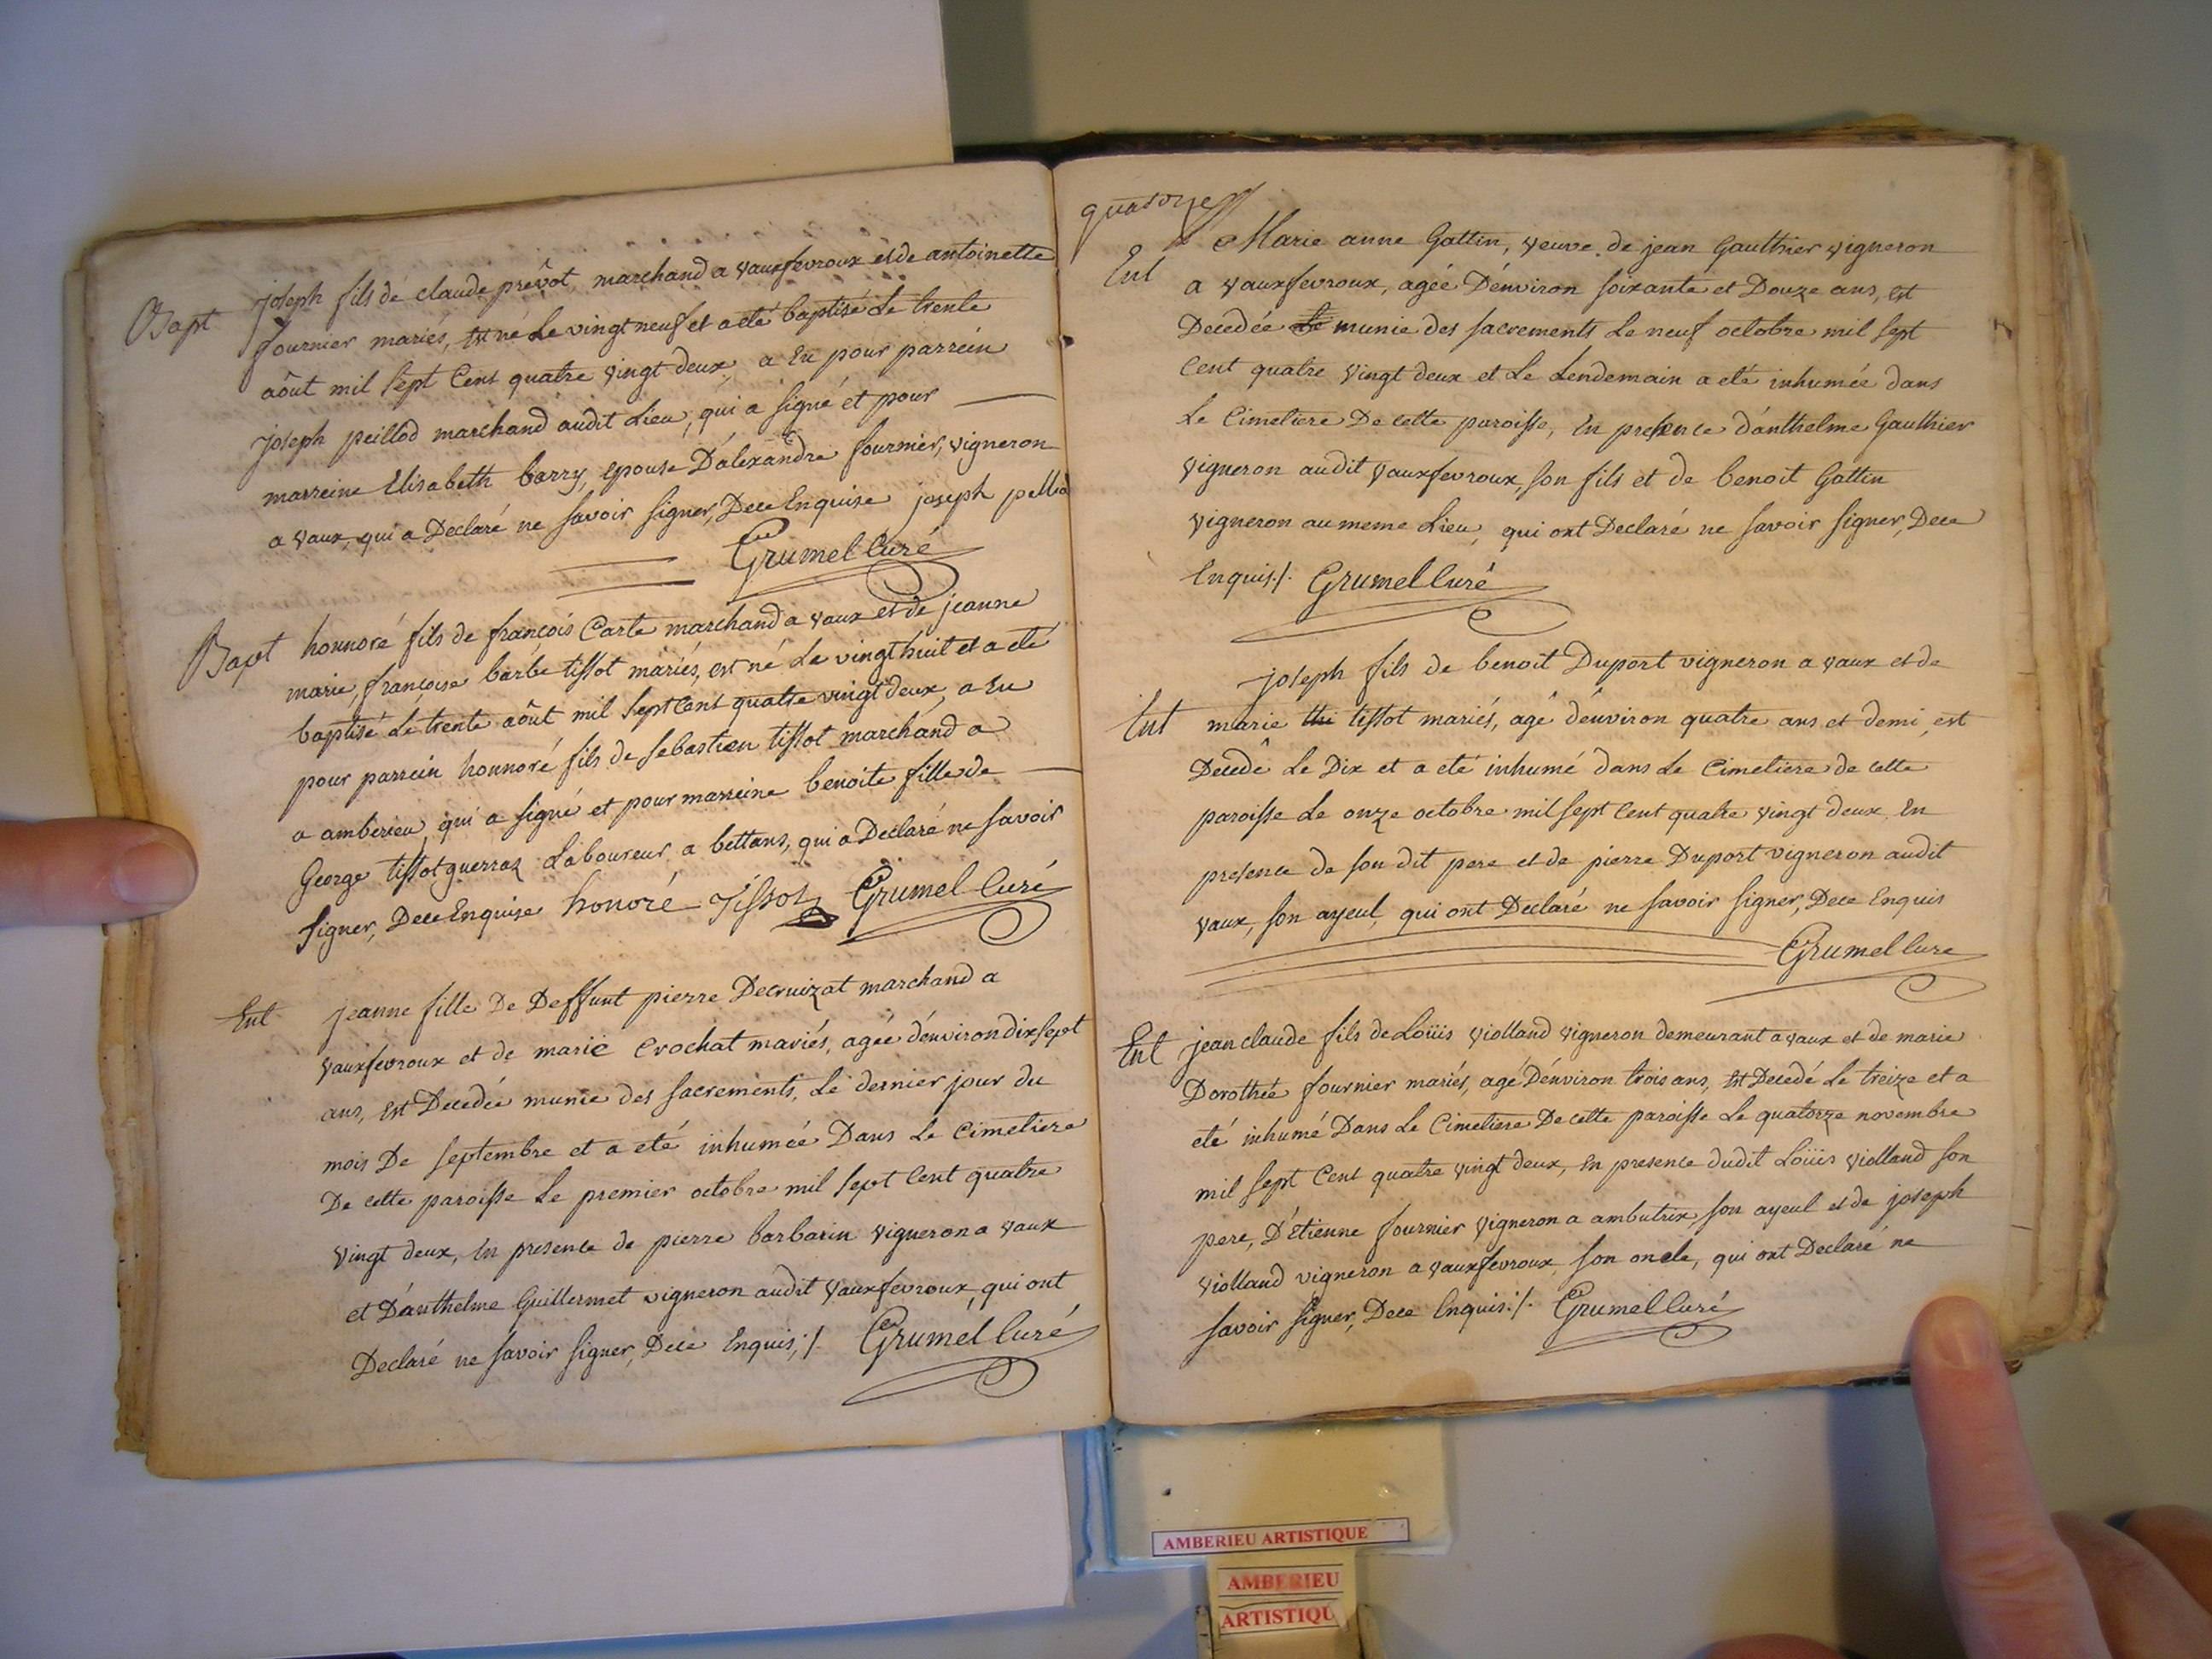 Bapt joseph fils de claude prevôt, marchand a vauxfevroux et de antoinette
fournier mariés, Est né Le vingt neuf et a eté baptisé Le trente
aôut mil sept Cent quatre vingt deux, a Eu pour parrein
joseph peillod marchand audit Lieu, qui a signé et pour
marreine Elisabeth barry, epouse D'alexandre fournier, vigneron
a vaux, qui a Declaré ne savoir signer, Dece Enquise joseph pellio
Grumel Curé
Bapt honnoré fils de françois Carte marchand a vaux et de jeanne
marie, francoise barbe tissot mariés, est né Le vingt huit et a eté
baptisé Le trente aôut mil sept Cent quatre vingt deux, a Eu
pour parrein honnoré fils de sebastien tissot marchand a
a amberieu qui a signé et pour marreine benoite fille de
George tissot guerraz Laboureur a bettans, qui a Declaré ne savoir
signer, Dece Enquise honoré Tissot Grumel Curé
Ent jeanne fille De Deffunt pierre Decruizat marchand a
vauxfevroux et de marie Crochat mariés, agée d'environ dix sept
ans, Est Decedée munie des sacrements, Le dernier jour du
mois De septembre et a eté inhumée Dans Le Cimetiere
De cette paroisse Le premier octobre mil sept Cent quatre
vingt deux, En presence de pierre barbarin vigneron a vaux
et D'anthelme Guillermet vigneron audit vauxfevroux, qui ont
Declaré ne savoir signer, Dece Enquis ;/. Grumel Curé
quatorze
Ent Marie anne Gattin, veuve de jean Gauthier vigneron
a vauxfevroux, agée D'environ soixante et Douze ans, Est
Decedée Le munie des sacrements Le neuf octobre mil sept
Cent quatre vingt deux et Le Lendemain a eté inhumée dans
Le Cimetiere De cette paroisse, En presence d'anthelme Gauthier
vigneron audit vauxfevroux, son fils et de benoit Gattin
vigneron au meme Lieu, qui ont Declaré ne savoir signer, Dece
Enquis./. Grumel Curé
joseph fils de benoit Duport vigneron a vaux et de
Ent marie thi tissot mariés, agé d'environ quatre ans et demi, est
Decedé Le Dix et a eté inhumé dans Le Cimetiere de cette
paroisse Le onze octobre mil sept Cent quatre vingt deux, En
presence de son dit pere et de pierre Duport vigneron audit
vaux, son ayeul, qui ont Declaré ne savoir signer, Dece Enquis
Grumel Cure
Ent jean claude fils de Loüis violland vigneron demeurant a vaux et de marie
Dorothée fournier mariés, agé D'environ trois ans, Est Decedé Le treize et a
eté inhumé Dans Le Cimetiere De cette paroisse Le quatorze novembre
mil sept Cent quatre vingt deux, En presence dudit Loüis violland son
pere, D'Etienne fournier vigneron a ambutrix, son ayeul et de joseph
violland vigneron a vauxfevroux, son oncle, qui ont Declaré ne
savoir signer, Dece Enquis:/. Grumel Curé
AMBERIEU ARTISTIQUE
AMBERIEU
ARTISTIQU